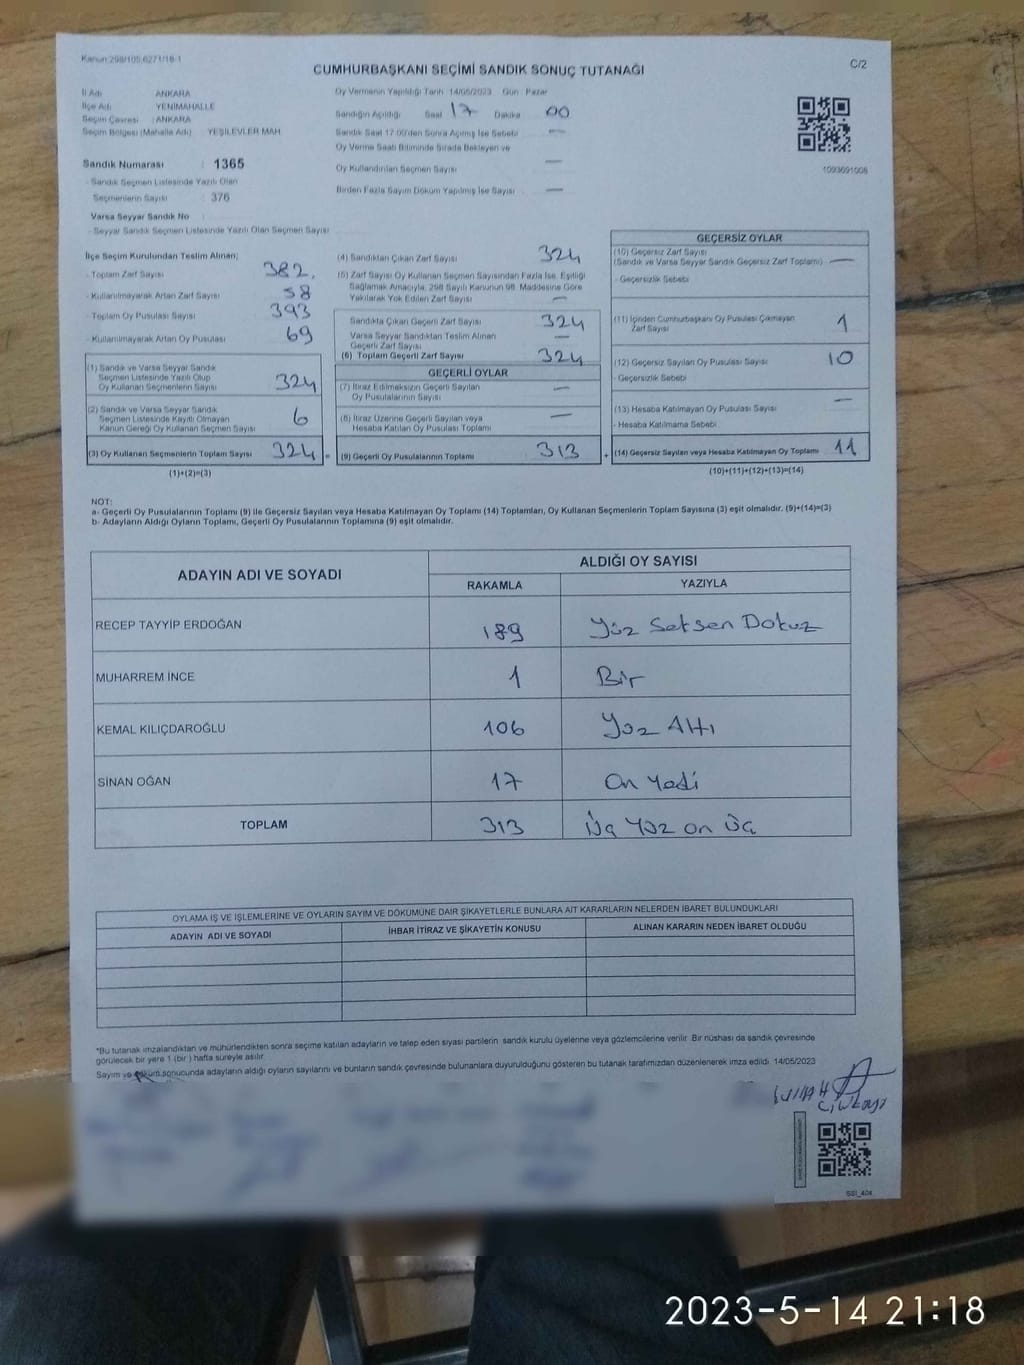 Kanun:298/105,6271/18-1
CUMHURBAŞKANI SEÇİMİ SANDIK SONUÇ TUTANAĞI
C/2
İl Adı ANKARA
İlçe Adı YENİMAHALLE
Seçim Çevresi : ANKARA
Seçim Bölgesi (Mahalle Adı) YEŞİLEVLER MAH
Sandık Numarası : 1365
- Sandık Seçmen Listesinde Yazılı Olan
Seçmenlerin Sayısı : 376
Varsa Seyyar Sandık No :
- Seyyar Sandık Seçmen Listesinde Yazılı Olan Seçmen Sayısı :
Oy Vermenin Yapıldığı Tarih 14/05/2023 Gün Pazar
Sandığın Açıldığı Saat 17 Dakika 00
Sandık Saat 17.00'den Sonra Açılmış İse Sebebi —
Oy Verme Saati Bitiminde Sırada Bekleyen ve
Oy Kullandırılan Seçmen Sayısı —
Birden Fazla Sayım Döküm Yapılmış İse Sayısı —
1093691008
İlçe Seçim Kurulundan Teslim Alınan;
- Toplam Zarf Sayısı 382
- Kullanılmayarak Artan Zarf Sayısı 58
- Toplam Oy Pusulası Sayısı 393
- Kullanılmayarak Artan Oy Pusulası 69
(1) Sandık ve Varsa Seyyar Sandık
Seçmen Listesinde Yazılı Olup
Oy Kullanan Seçmenlerin Sayısı 324
(2) Sandık ve Varsa Seyyar Sandık
Seçmen Listesinde Kayıtlı Olmayan
Kanun Gereği Oy Kullanan Seçmen Sayısı 6
(3) Oy Kullanan Seçmenlerin Toplam Sayısı 324 =
(1)+(2)=(3)
(4) Sandıktan Çıkan Zarf Sayısı 324
(5) Zarf Sayısı Oy Kullanan Seçmen Sayısından Fazla İse, Eşitliği
Sağlamak Amacıyla, 298 Sayılı Kanunun 98. Maddesine Göre
Yakılarak Yok Edilen Zarf Sayısı —
Sandıkta Çıkan Geçerli Zarf Sayısı 324
Varsa Seyyar Sandıktan Teslim Alınan
Geçerli Zarf Sayısı —
(6) Toplam Geçerli Zarf Sayısı 324
GEÇERLİ OYLAR
(7) İtiraz Edilmeksizin Geçerli Sayılan
Oy Pusulalarının Sayısı —
(8) İtiraz Üzerine Geçerli Sayılan veya
Hesaba Katılan Oy Pusulası Toplamı —
(9) Geçerli Oy Pusulalarının Toplamı 313 +
GEÇERSİZ OYLAR
(10) Geçersiz Zarf Sayısı
(Sandık ve Varsa Seyyar Sandık Geçersiz Zarf Toplamı) —
- Geçersizlik Sebebi
(11) İçinden Cumhurbaşkanı Oy Pusulası Çıkmayan
Zarf Sayısı 1
(12) Geçersiz Sayılan Oy Pusulası Sayısı 10
- Geçersizlik Sebebi
(13) Hesaba Katılmayan Oy Pusulası Sayısı —
- Hesaba Katılmama Sebebi
(14) Geçersiz Sayılan veya Hesaba Katılmayan Oy Toplamı 11
(10)+(11)+(12)+(13)=(14)
NOT:
a- Geçerli Oy Pusulalarının Toplamı (9) ile Geçersiz Sayılan veya Hesaba Katılmayan Oy Toplamı (14) Toplamları, Oy Kullanan Seçmenlerin Toplam Sayısına (3) eşit olmalıdır. (9)+(14)=(3)
b- Adayların Aldığı Oyların Toplamı, Geçerli Oy Pusulalarının Toplamına (9) eşit olmalıdır.
ADAYIN ADI VE SOYADI ALDIĞI OY SAYISI
RAKAMLA YAZIYLA
RECEP TAYYİP ERDOĞAN 189 Yüz Seksen Dokuz
MUHARREM İNCE 1 Bir
KEMAL KILIÇDAROĞLU 106 Yüz Altı
SİNAN OĞAN 17 On Yedi
TOPLAM 313 Üç Yüz on üç
OYLAMA İŞ VE İŞLEMLERİNE VE OYLARIN SAYIM VE DÖKÜMÜNE DAİR ŞİKAYETLERLE BUNLARA AİT KARARLARIN NELERDEN İBARET BULUNDUKLARI
ADAYIN ADI VE SOYADI İHBAR İTİRAZ VE ŞİKAYETİN KONUSU ALINAN KARARIN NEDEN İBARET OLDUĞU
*Bu tutanak imzalandıktan ve mühürlendikten sonra seçime katılan adayların ve talep eden siyasi partilerin sandık kurulu üyelerine veya gözlemcilerine verilir. Bir nüshası da sandık çevresinde
görülecek bir yere 1 (bir) hafta süreyle asılır.
Sayım ve döküm sonucunda adayların aldığı oyların sayılarını ve bunların sandık çevresinde bulunanlara duyurulduğunu gösteren bu tutanak tarafımızdan düzenlenerek imza edildi. 14/05/2023
SSI_404
2023-5-14 21:18